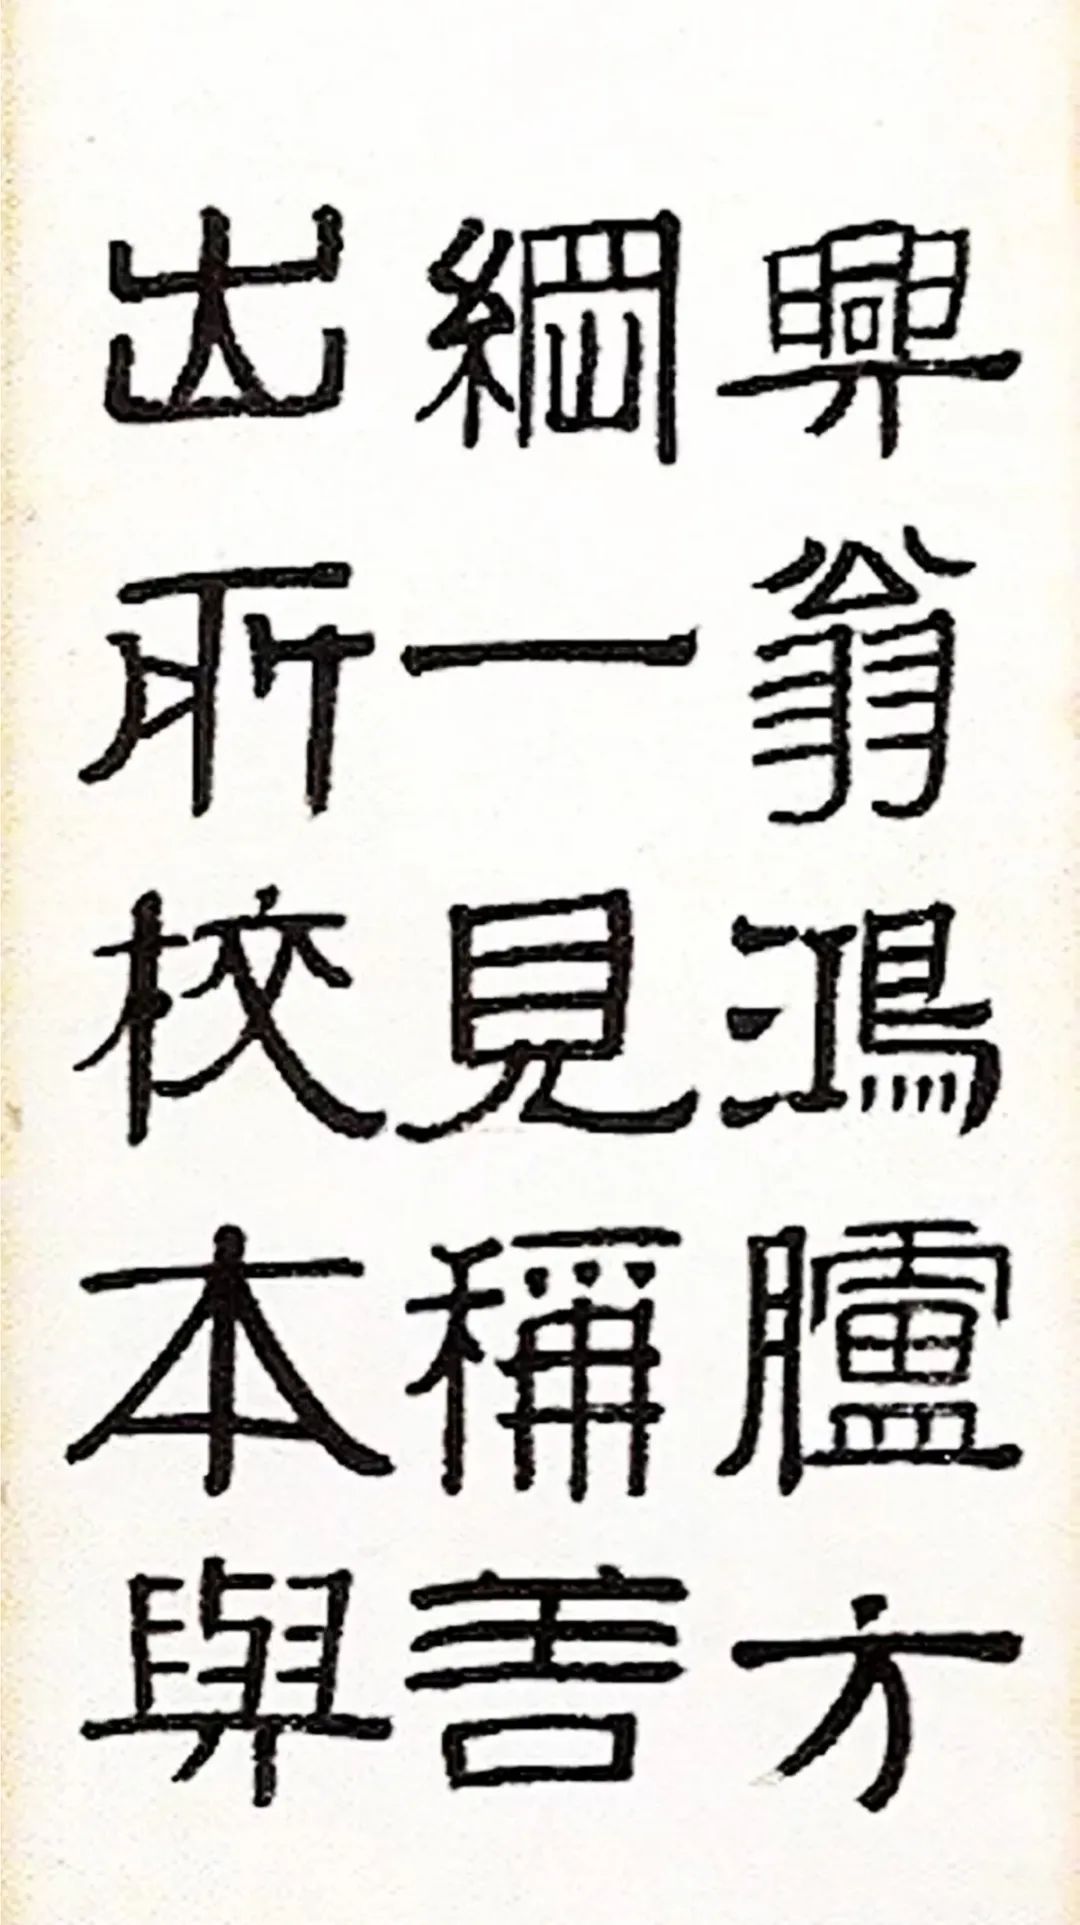 興翁鴻臚方
綱一見稱善
出所校本與